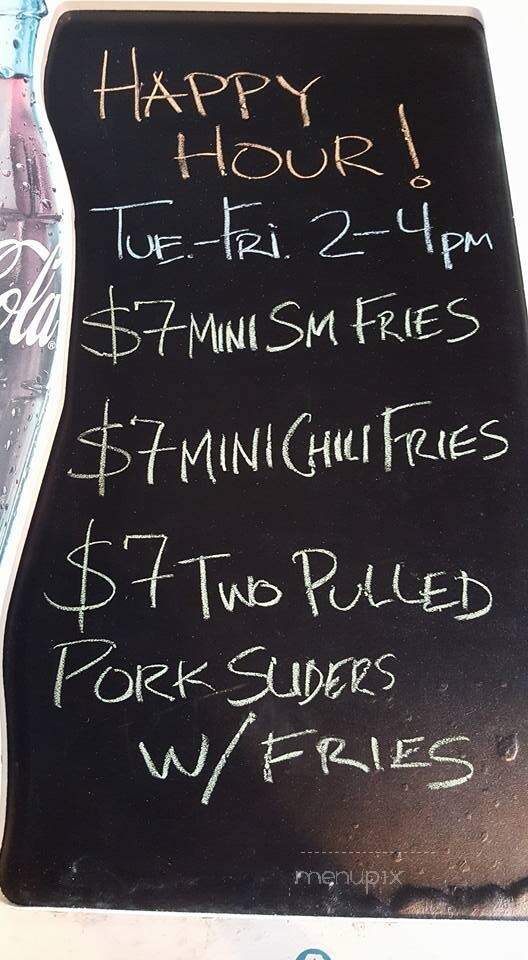 HAPPY
HOUR!
TUE.-FRI. 2-4pm
$7 MINI SM FRIES
$7 MINI CHILI FRIES
$7 TWO PULLED
PORK SLIDERS
W/ FRIES
ola
menupix